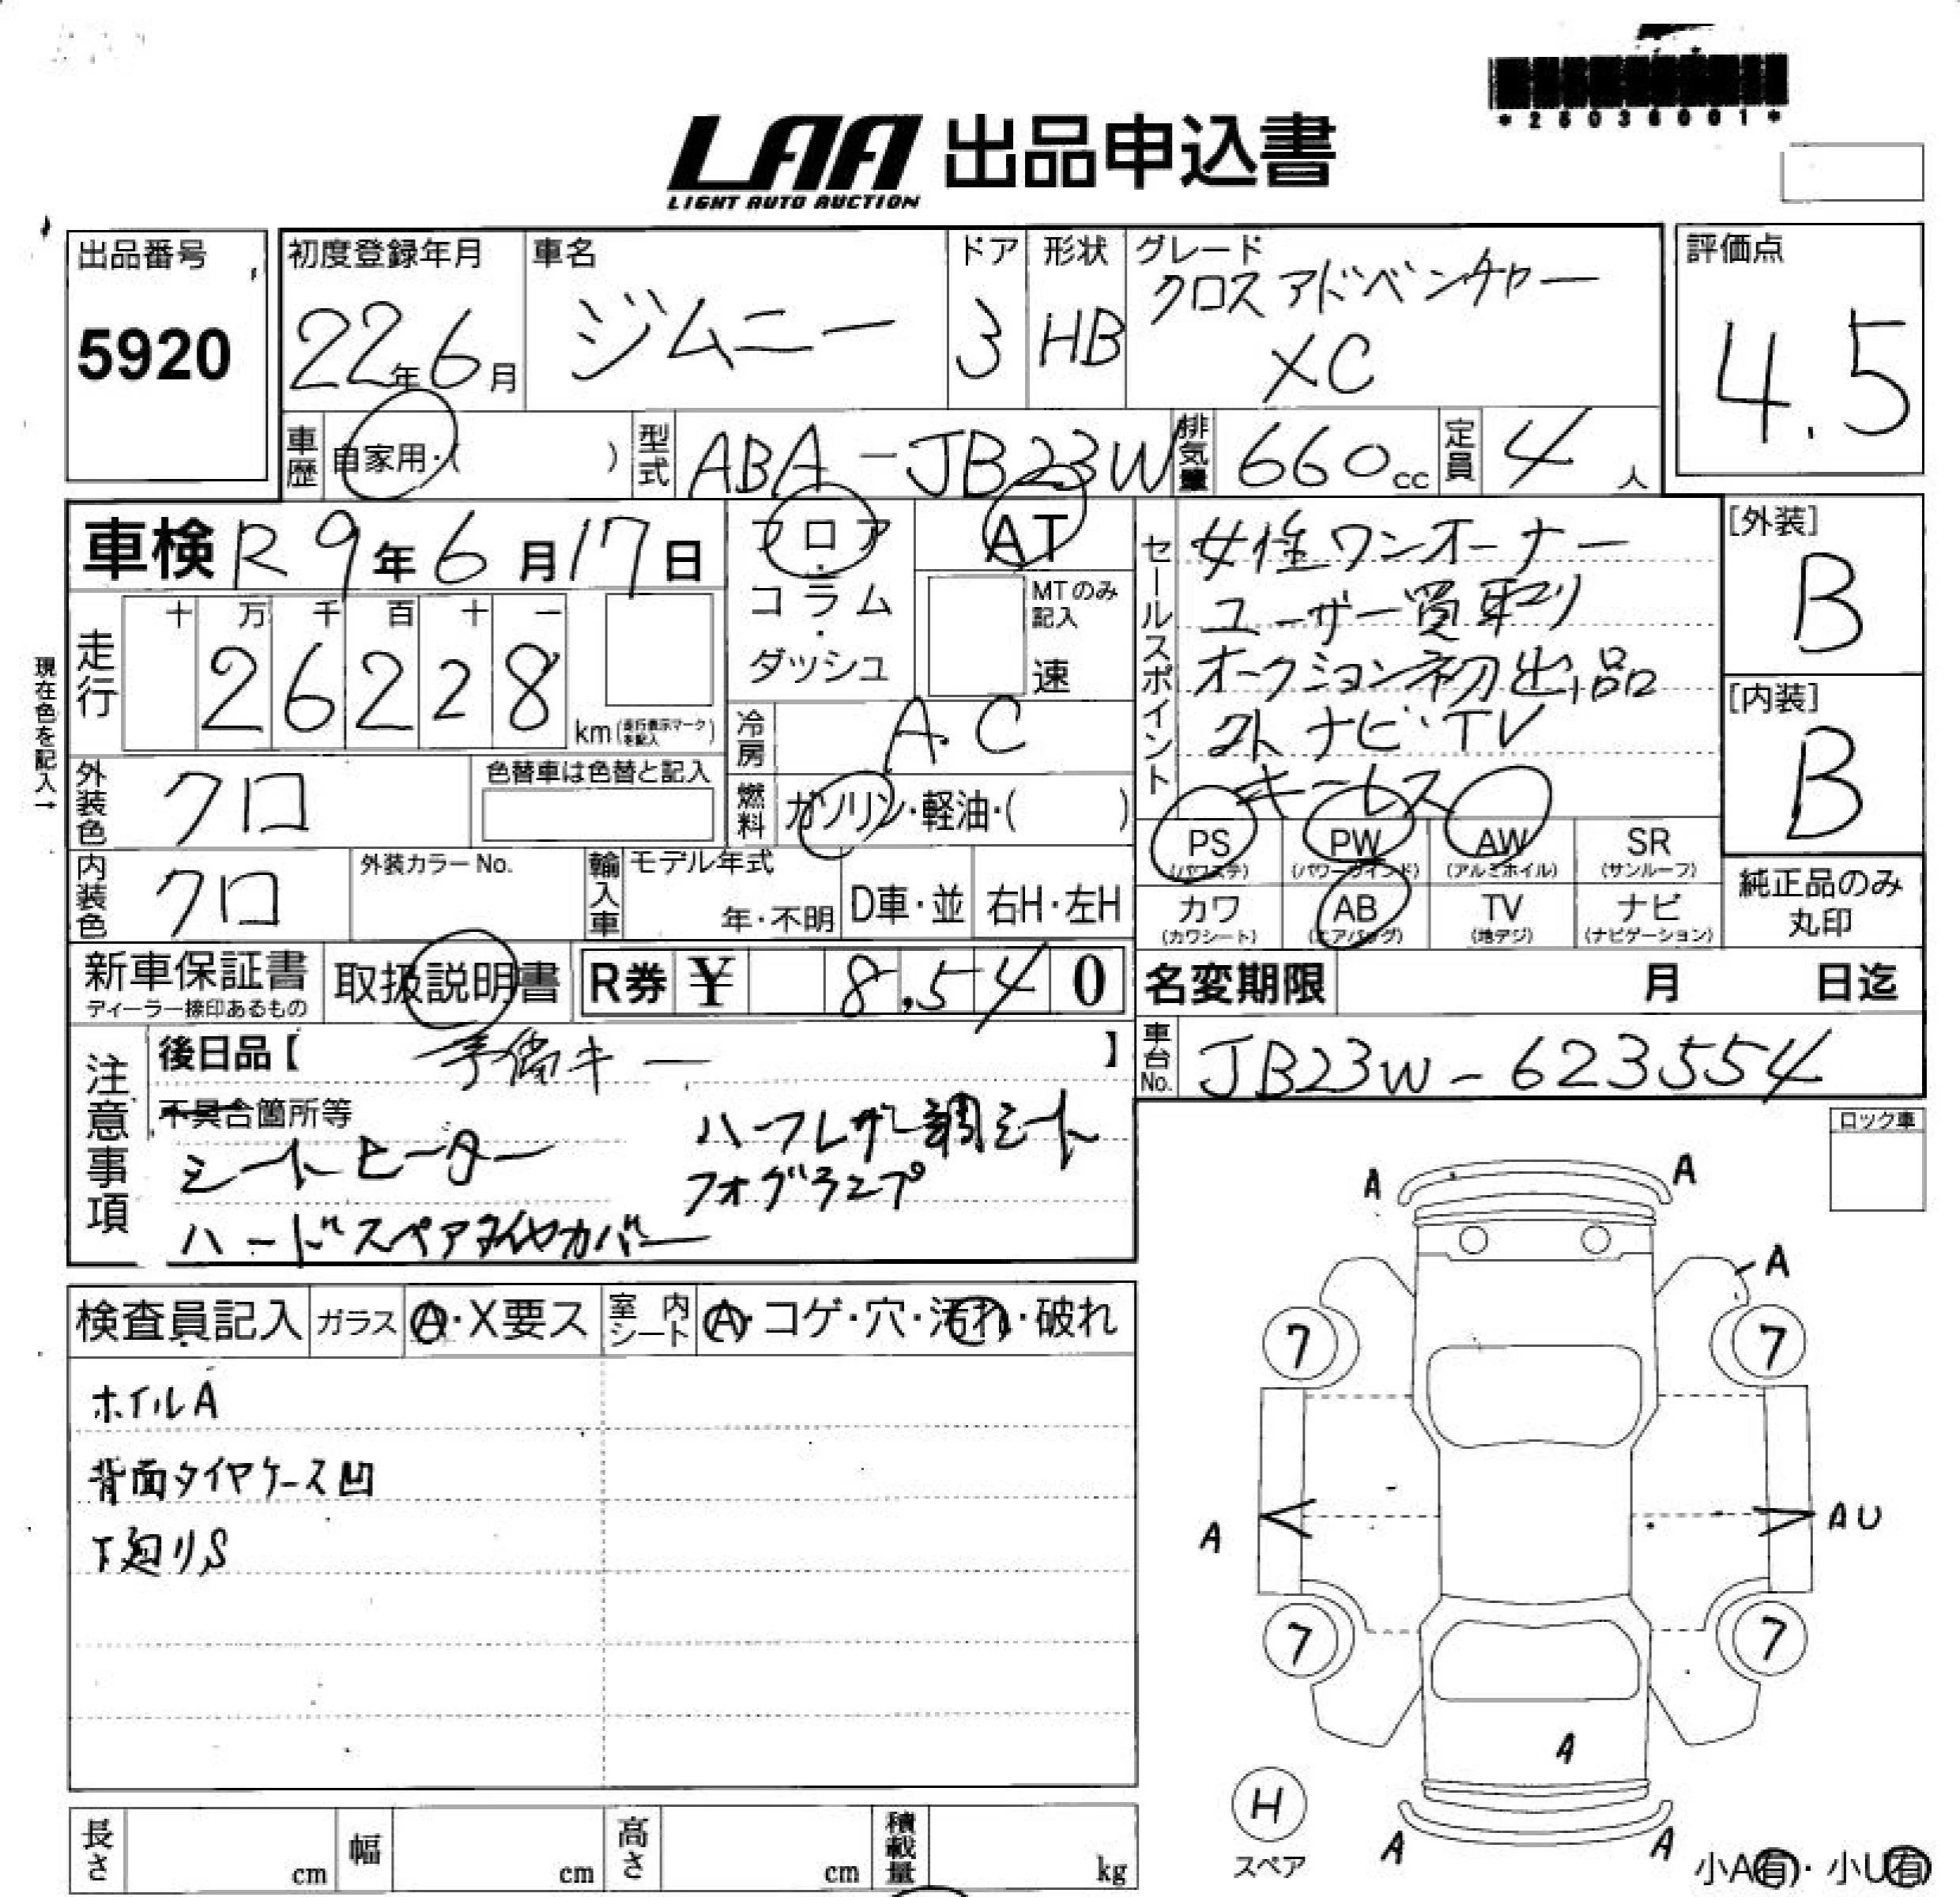 *26036001*
LAA 出品申込書
LIGHT AUTO AUCTION
出品番号
5920
初度登録年月
22年6月
車名
ジムニー
ドア
3
形状
HB
グレード
クロスアドベンチャー
XC
評価点
4.5
車歴 自家用・( )
型式 ABA-JB23W
排気量 660cc
定員 4人
車検 R9年6月17日
フロア・コラム・ダッシュ
AT
MTのみ記入
速
走行
十 万 千 百 十 一
2 6 2 2 8 km (走行表示マークを記入)
現在色を記入→
冷房 A.C
燃料 ガソリン・軽油・( )
外装色 クロ
色替車は色替と記入
内装色 クロ
外装カラーNo.
輸入車
モデル年式
年・不明
D車・並
右H・左H
セールスポイント
女性ワンオーナー
ユーザー買取り
オークション初出品
外ナビ・TV
キーレス
PS (パワステ)
PW (パワーウインド)
AW (アルミホイル)
SR (サンルーフ)
カワ (カワシート)
AB (エアバッグ)
TV (地デジ)
ナビ (ナビゲーション)
[外装]
B
[内装]
B
純正品のみ丸印
新車保証書
ディーラー捺印あるもの
取扱説明書
R券 ¥ 8,540
名変期限 月 日迄
車台No. JB23W-623554
注意事項
後日品【 予備キー 】
不具合箇所等
シートヒーター ハーフレザー調シート
フォグランプ
ハードスペアタイヤカバー
ロック車
検査員記入
ガラス A・X要ス
室内シート A・コゲ・穴・汚れ・破れ
ホイルA
背面タイヤケース凹
下廻りS
A A
A
7 7
A AU
7 7
A
H
スペア
A A
小A有・小U有
長さ cm
幅 cm
高さ cm
積載量 kg